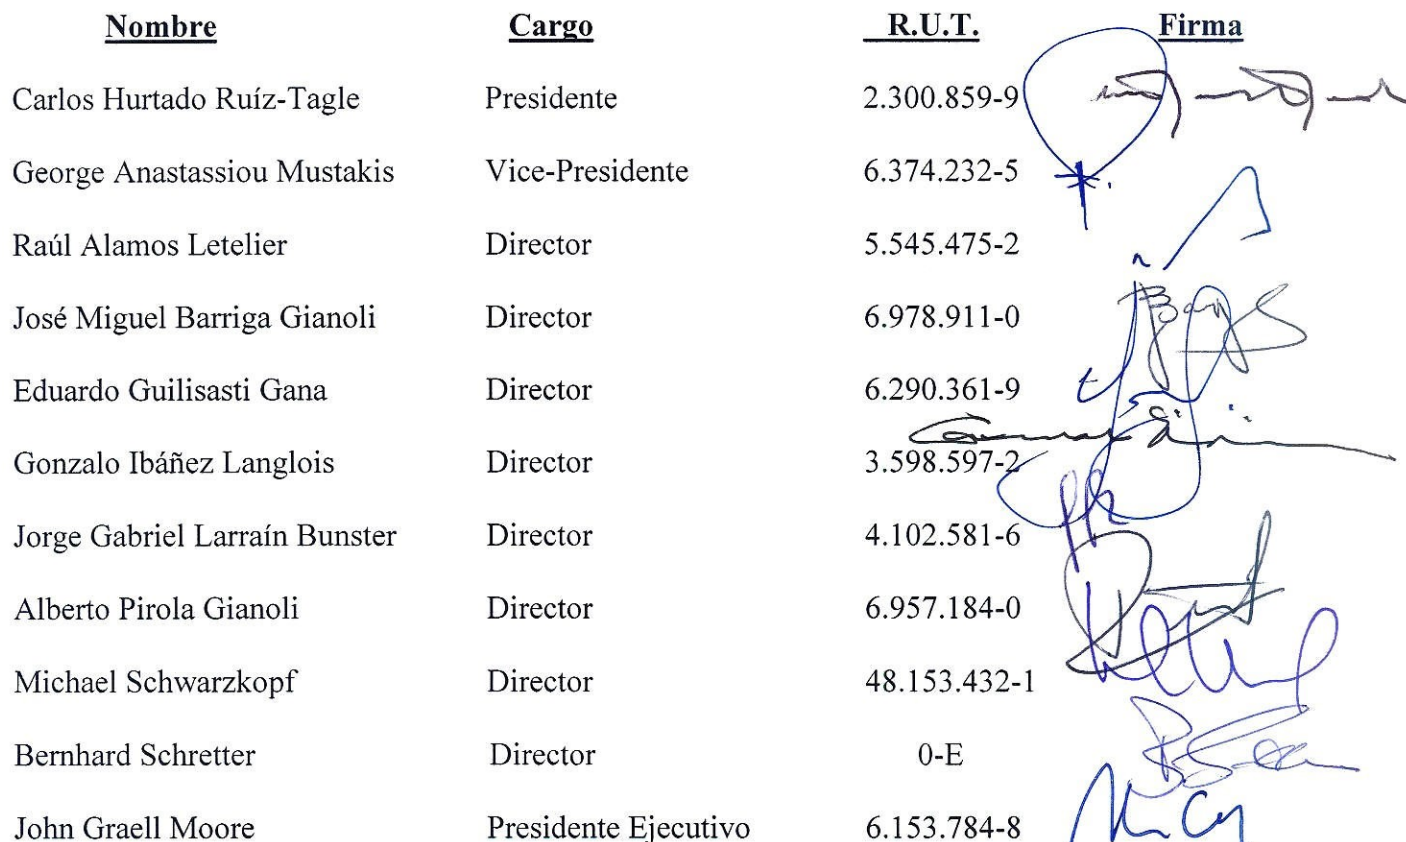 Nombre Cargo R.U.T. Firma
Carlos Hurtado Ruíz-Tagle Presidente 2.300.859-9
George Anastassiou Mustakis Vice-Presidente 6.374.232-5
Raúl Alamos Letelier Director 5.545.475-2
José Miguel Barriga Gianoli Director 6.978.911-0
Eduardo Guilisasti Gana Director 6.290.361-9
Gonzalo Ibáñez Langlois Director 3.598.597-2
Jorge Gabriel Larraín Bunster Director 4.102.581-6
Alberto Pirola Gianoli Director 6.957.184-0
Michael Schwarzkopf Director 48.153.432-1
Bernhard Schretter Director 0-E
John Graell Moore Presidente Ejecutivo 6.153.784-8